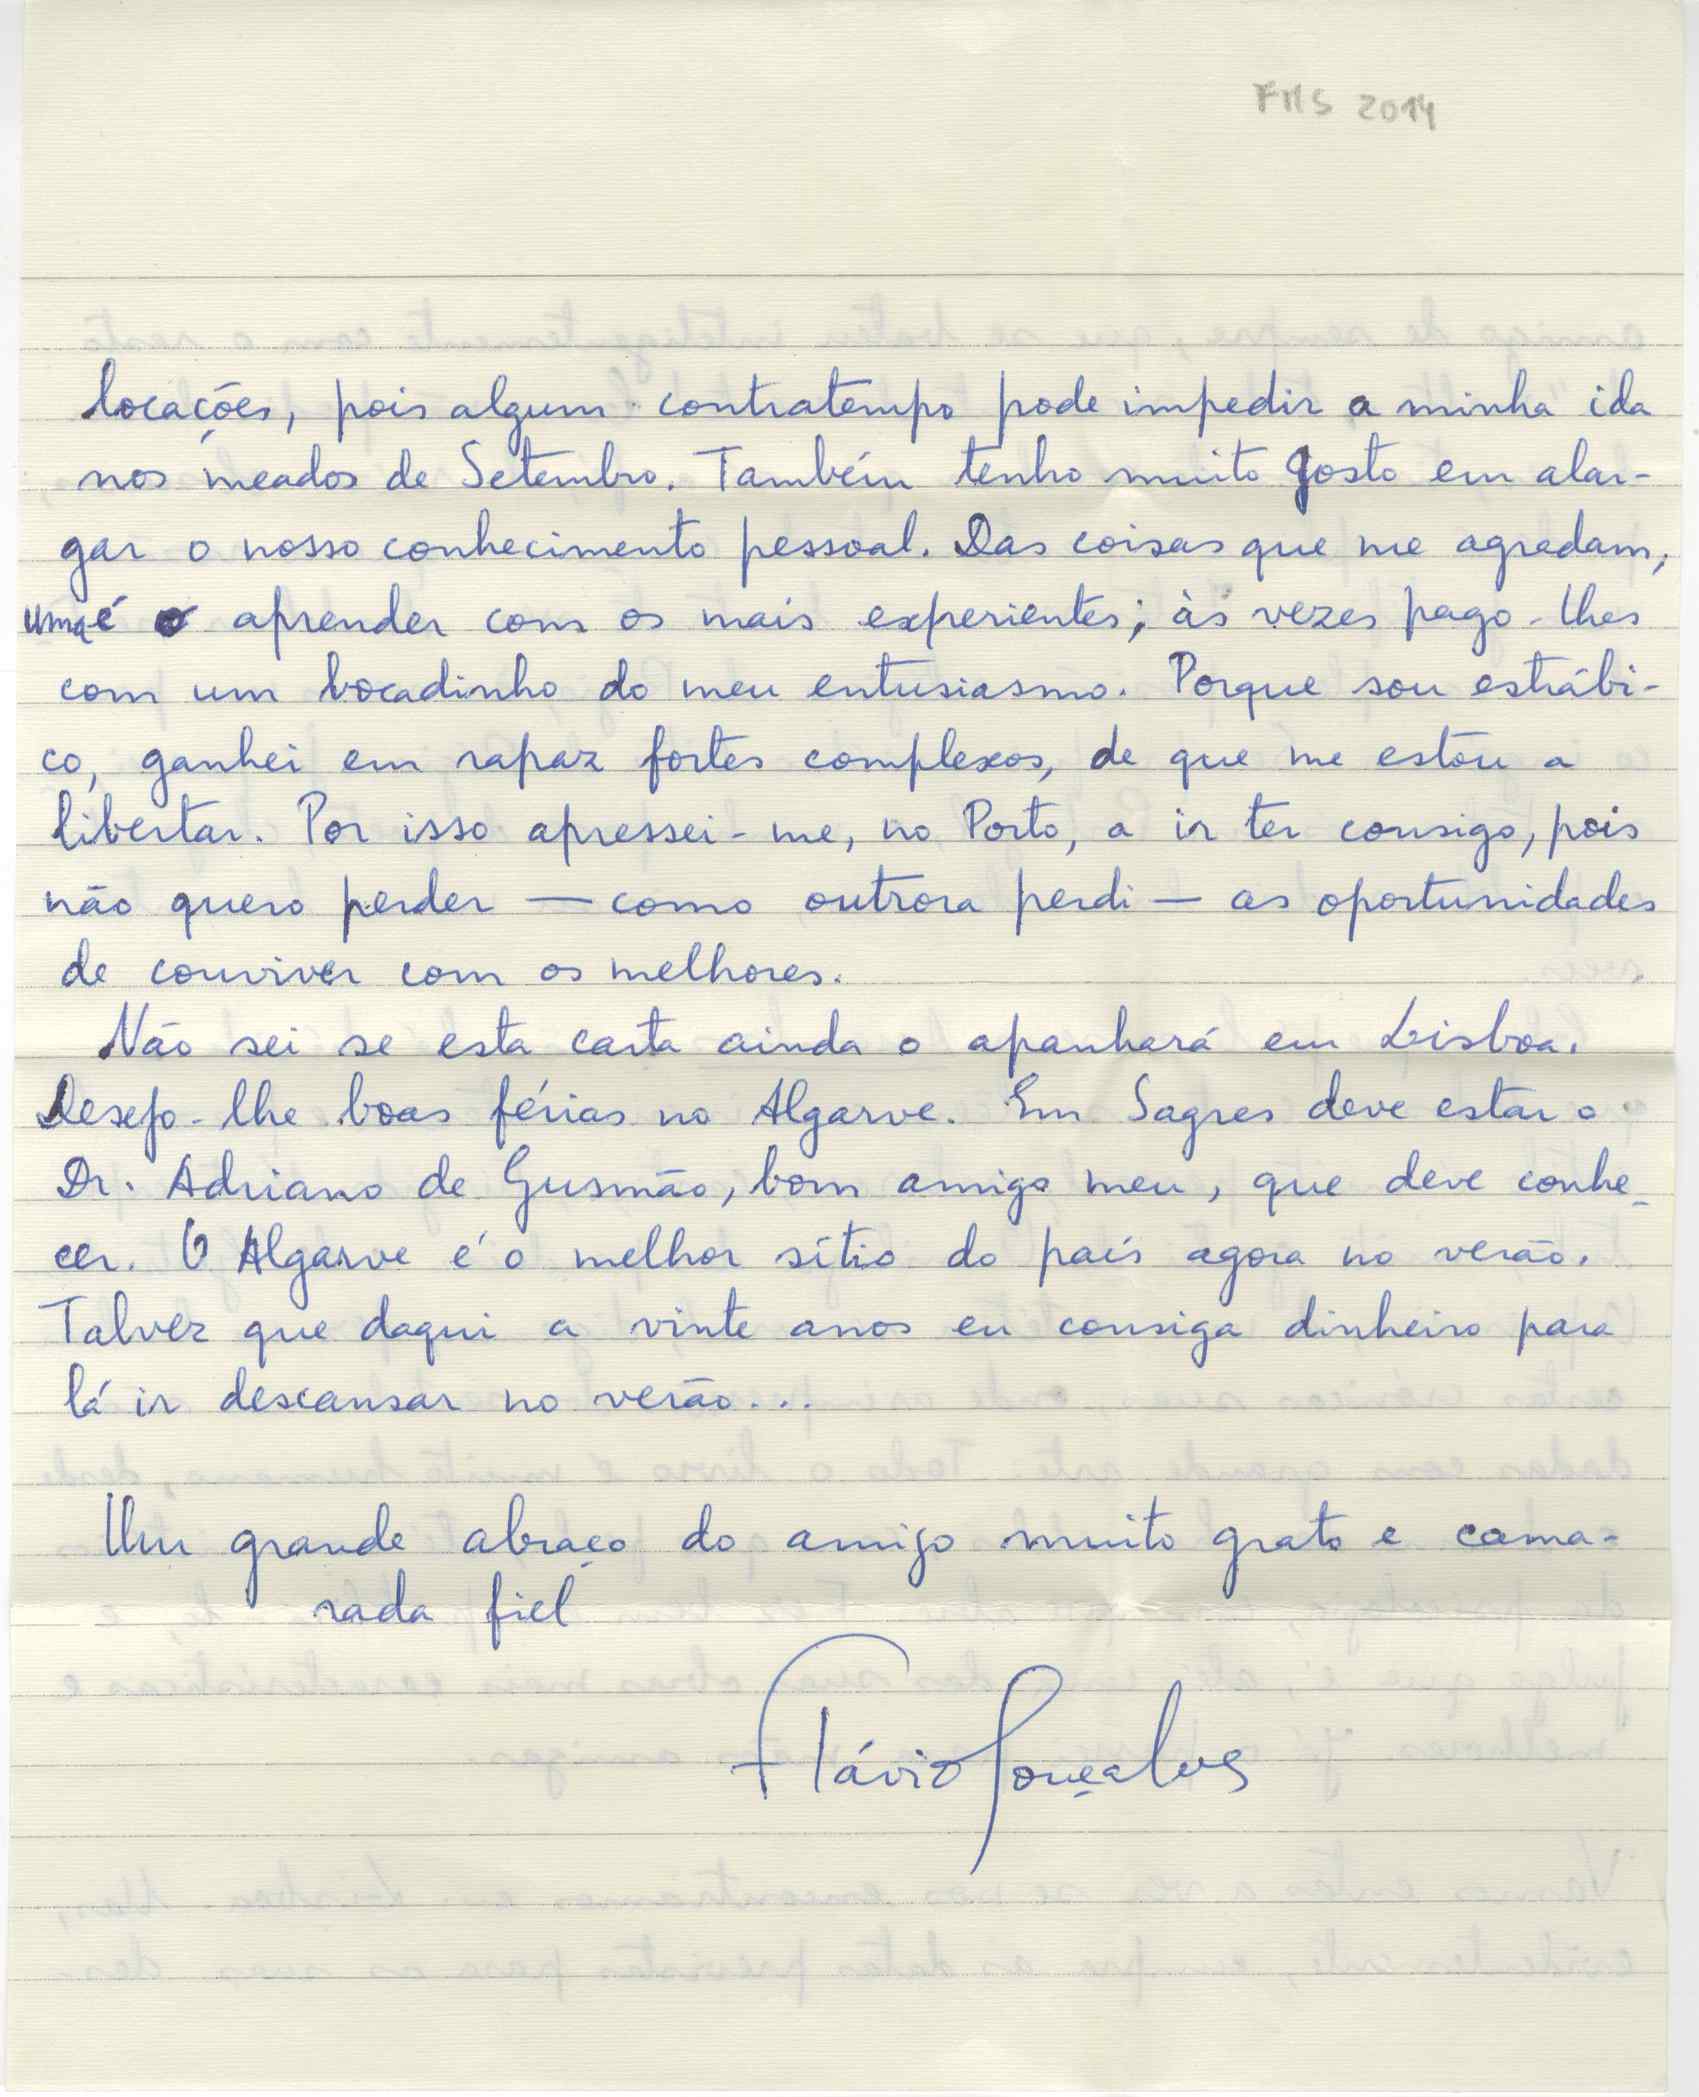 FMS 2014
locações, pois algum contratempo pode impedir a minha ida
nos meados de Setembro. Também tenho muito gosto em alar-
gar o nosso conhecimento pessoal. Das coisas que me agradam,
uma é o aprender com os mais experientes; às vezes pago-lhes
com um bocadinho do meu entusiasmo. Porque sou estrábi-
co, ganhei em rapaz fortes complexos, de que me estou a
libertar. Por isso apressei-me, no Porto, a ir ter consigo, pois
não quero perder — como outrora perdi — as oportunidades
de conviver com os melhores.
Não sei se esta carta ainda o apanhará em Lisboa.
Desejo-lhe boas férias no Algarve. Em Sagres deve estar o
Dr. Adriano de Gusmão, bom amigo meu, que deve conhe-
cer. O Algarve é o melhor sítio do país agora no verão.
Talvez que daqui a vinte anos eu consiga dinheiro para
lá ir descansar no verão...
Um grande abraço do amigo muito grato e cama-
rada fiel
Flávio Gonçalves